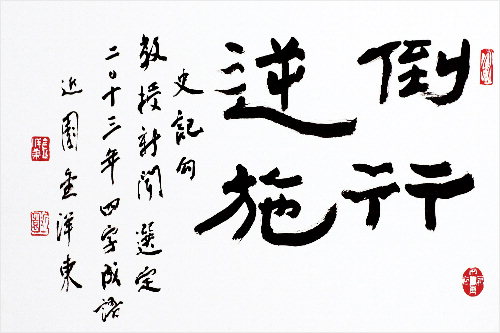 倒行
逆施
史記句
敎授新聞 選定
二〇十三年 四字成語
近園 金洋東